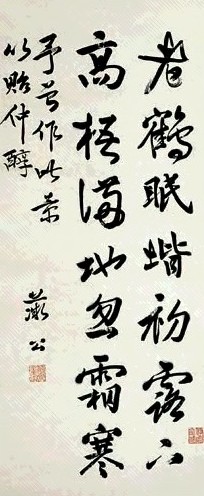 老鶴眠階初露下
高梧滿地忽霜寒
予嘗作此景
以貽仲醇
薇公